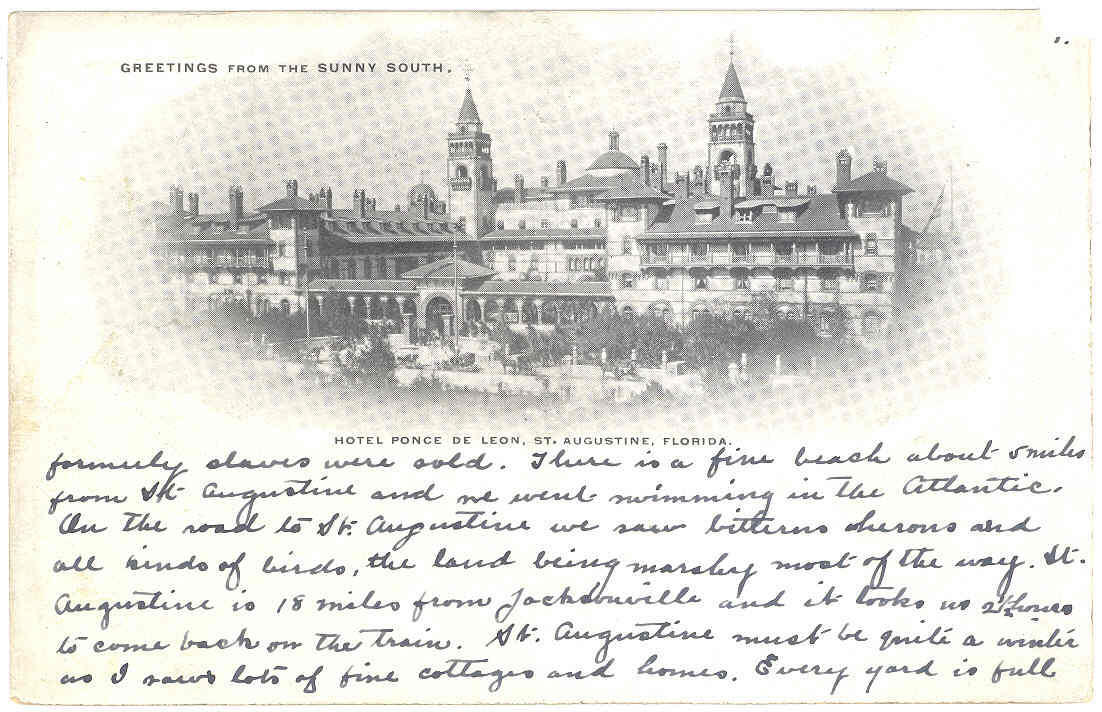 GREETINGS FROM THE SUNNY SOUTH.
HOTEL PONCE DE LEON, ST. AUGUSTINE, FLORIDA.
formerly slaves were sold. There is a fine beach about 5 miles
from St Augustine and we went swimming in the Atlantic.
On the road to St. Augustine we saw bitterns herons and
all kinds of birds, the land being marshy most of the way. St.
Augustine is 18 miles from Jacksonville and it tooks us 2½ hours
to come back on the train. St. Augustine must be quite a winter
as I saw lots of fine cottages and homes. Every yard is full